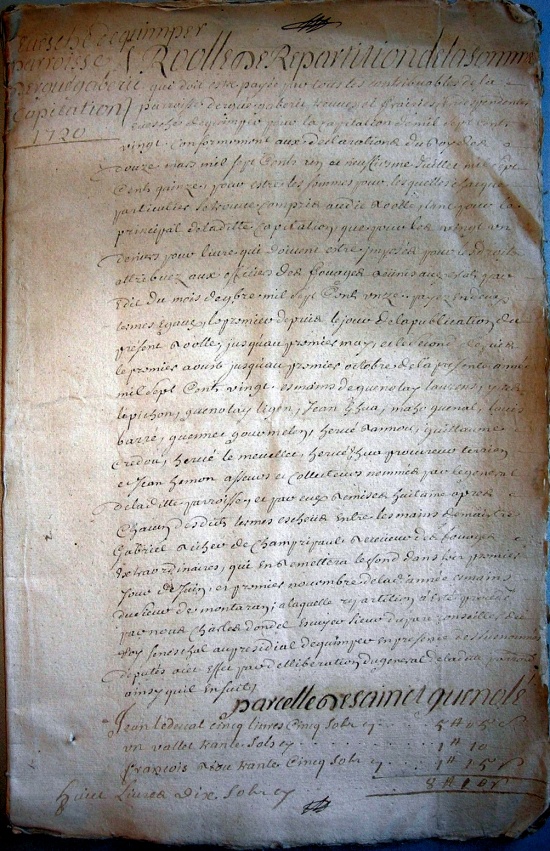 Evesché de quimper
parroisse
derguegaberic
Capitation
1720
Roolle de Repartition de la somme
que doit estre payée par tous les contribuables de la
parroisse derguegaberic treuves et frairies en dependantes
evesché de quimper pour la capitation de mil sept cents
vingt Conformement aux declarations du Roy des
douze mars mil sept Cents un et neuffiesme Juillet mil sept
Cents quinze, pour estre les sommes pour lesquelles chaque
particulier se trouve compris audit Roolle, tant pour le
principal de laditte Capitation, que pour les vingt un
deniers pour livre qui doivent estre imposés pour les droits
attribuez aux officiers des fouages reunis aux estats par
Edit du mois de xbre mil sept Cents onze, payez en deux
termes Egaux, le premier depuis le jour de la publication du
present Roolle, jusqu'au premier may, et le second depuis
le premier aoust jusqu'au premier octobre de la presente année
mil sept Cents vingt, es mains de guenolay laurens,
le pichon, guenolay ligen, Jean hua, mahe quenal, louis
barré, guennec gourmelon, hervé Rannou, guillaume
Credou, hervé le meuellec, hervé hua procureur terrien
et Jean hemon asseurs et collecteurs nommés par le general
de laditte parroisse, et par eux Remise huitaine après
Chacun desdits termes escheus Entre les mains de maitre
Gabriel Richer de Champripault Receveur des fouages
Extraordinaires, qui en Remettera le fond dans les premier
Jour de Juin, et premier novembre de lad. année es mains
du sieur de montaran, a laquelle repartition a Esté procédé
par nous Charles dondel Escuyer sieur du parc conseiller du
Roy seneschal au presidial de quimper en presence des susnommés
deputés a cet effet par deliberation du general de laditte parroisse
ainsy qu'il ensuit,
parcelle de sainct guenolé
Jean le decat cinq livres Cinq sols cy 5# 05s
un vallet trante sols cy 1# 10
françois Riou trante Cinq sols cy 1# 15s
8# 10s
huict Livres Dix sols cy